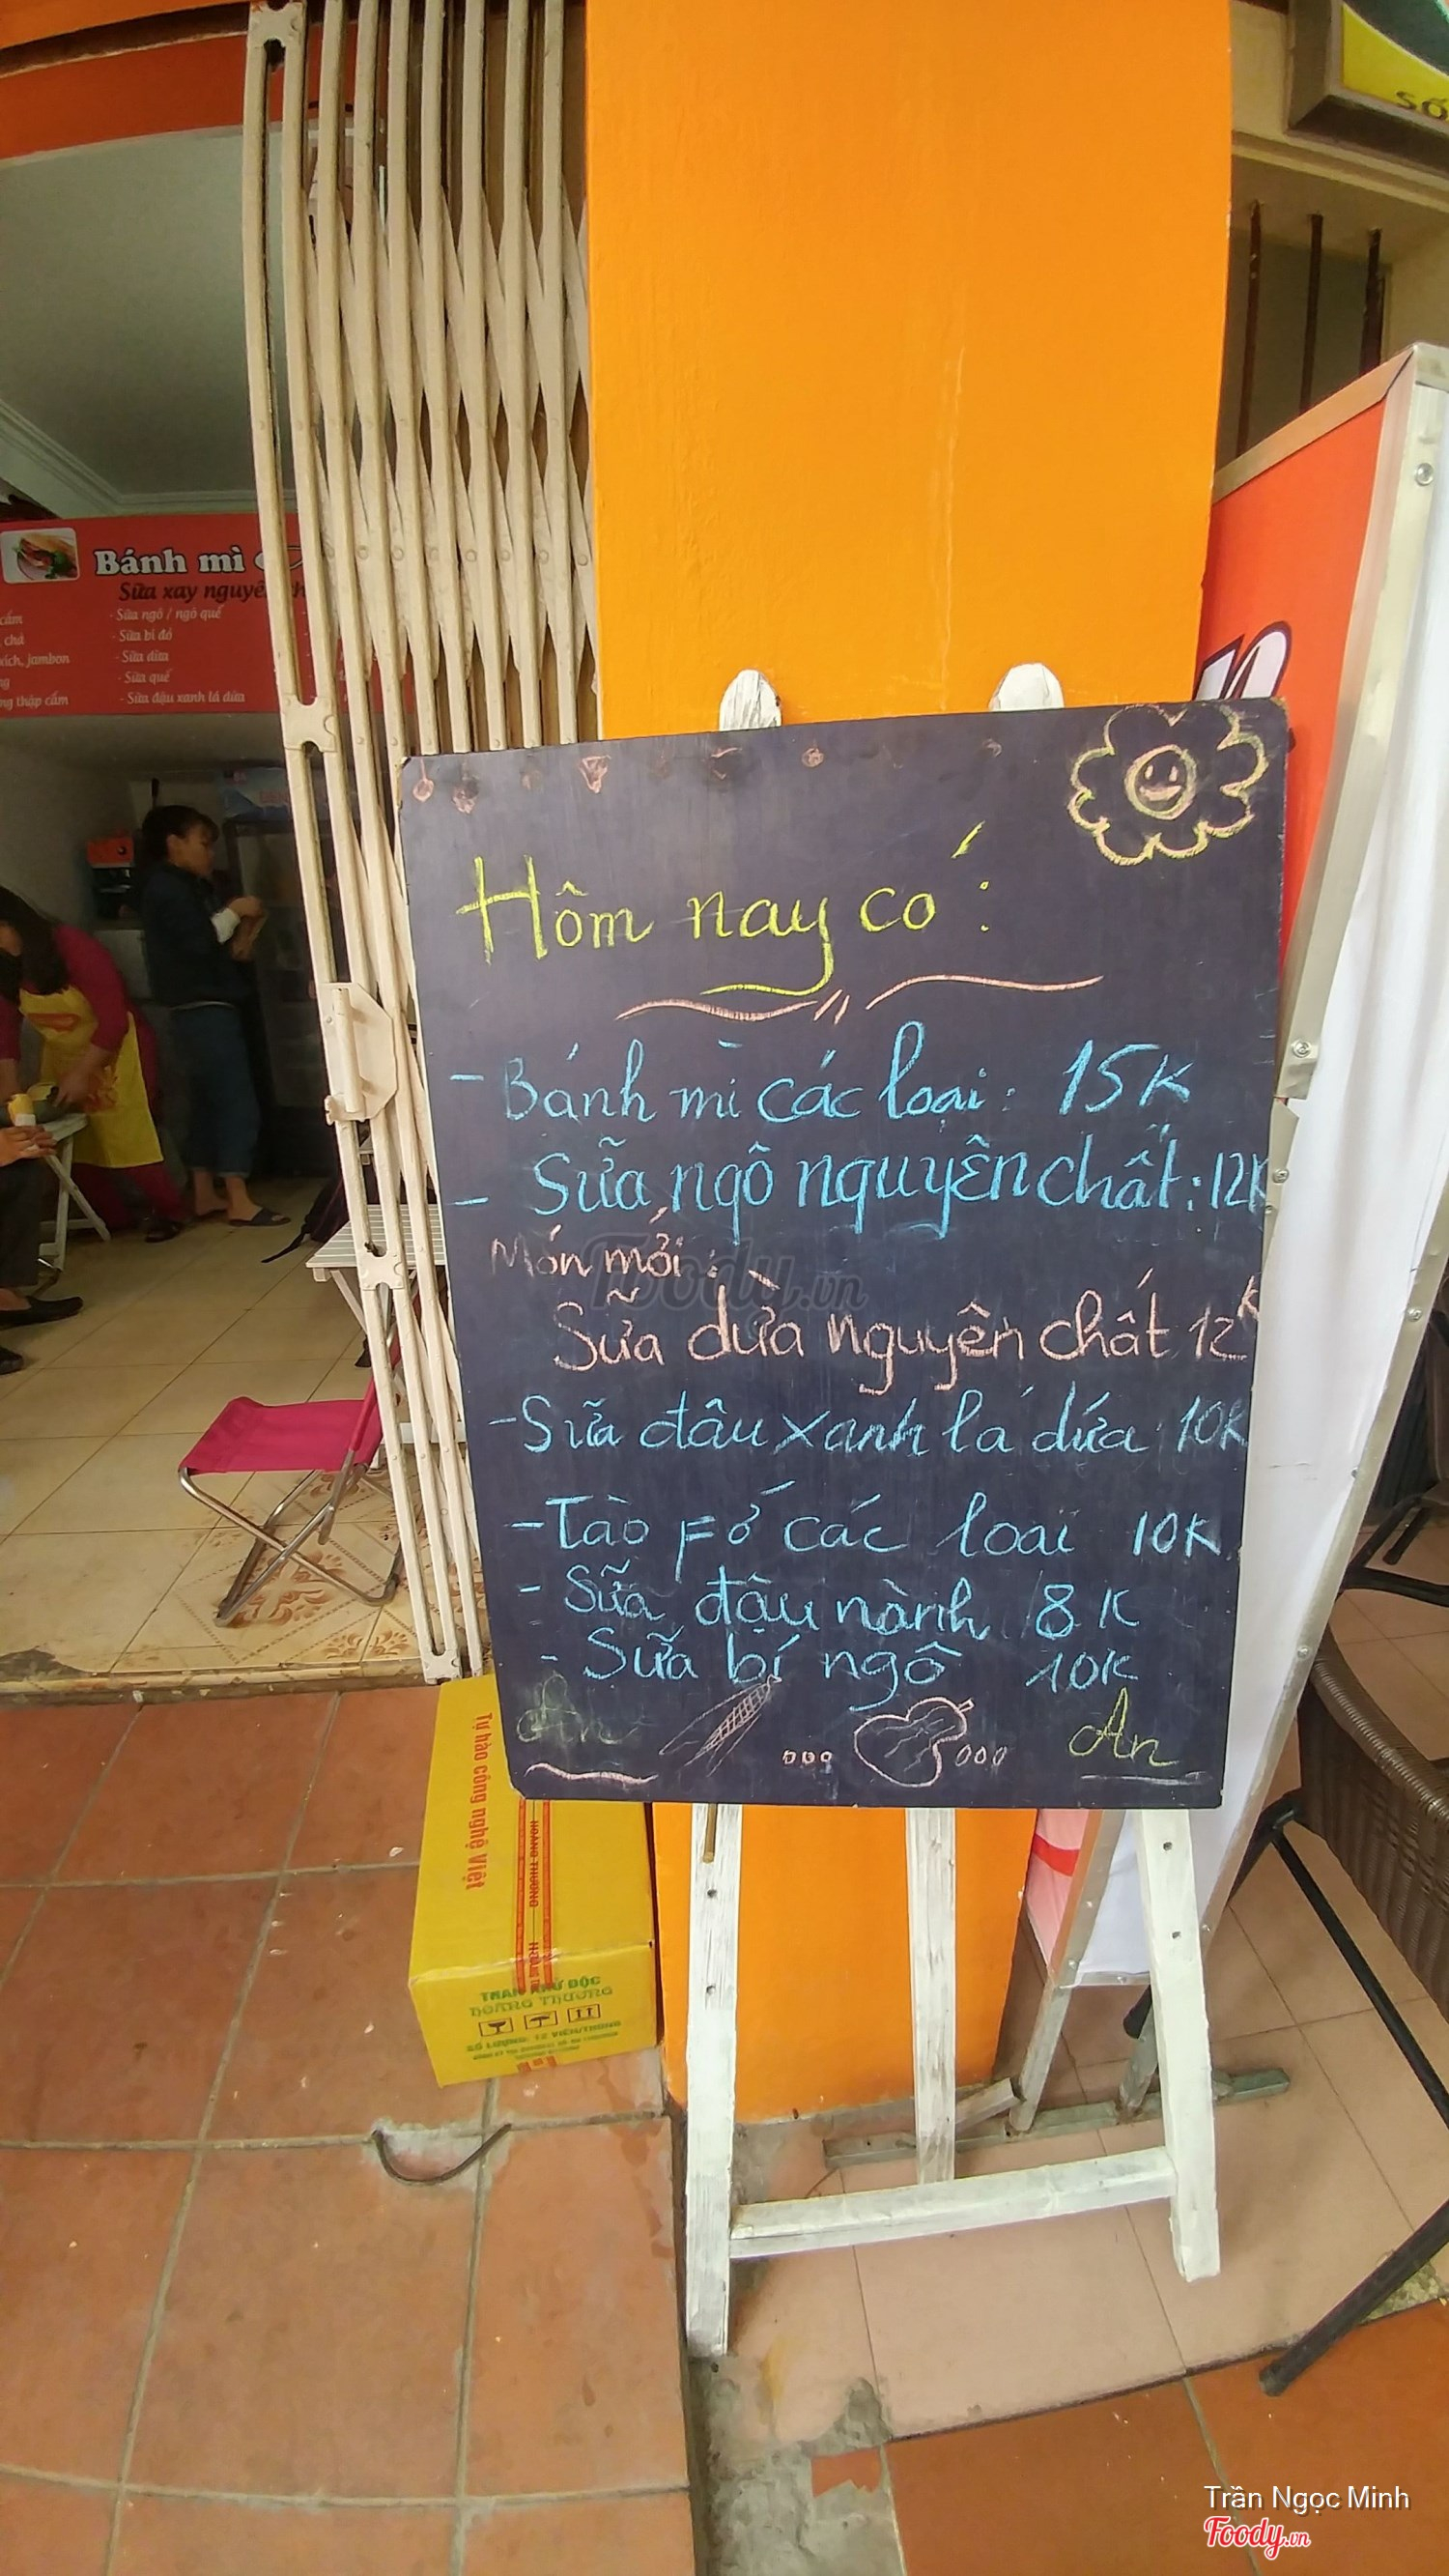 SỐ
Bánh mì
Sữa xay nguyên
cẩm
- Sữa ngô / ngô quế
chả
- Sữa bí đỏ
xích, jambon
- Sữa dừa
ng
- Sữa quế
ng thập cẩm
- Sữa đậu xanh lá dứa
Hôm nay có :
- Bánh mì các loại : 15K
- Sữa ngô nguyên chất : 12K
Món mới :
Sữa dừa nguyên chất 12K
- Sữa đâu xanh lá dứa : 10K
- Tào Fớ các loai 10K
- Sữa đậu nành 8K
- Sữa bí ngô 10K
An
An
Tự hào công nghệ Việt
HOÀNG THƯƠNG
THAN KHỬ ĐỘC
HOÀNG THƯƠNG
SỐ LƯỢNG: 12 VIÊN/THÙNG
Foody.vn
Trần Ngọc Minh
Foody.vn